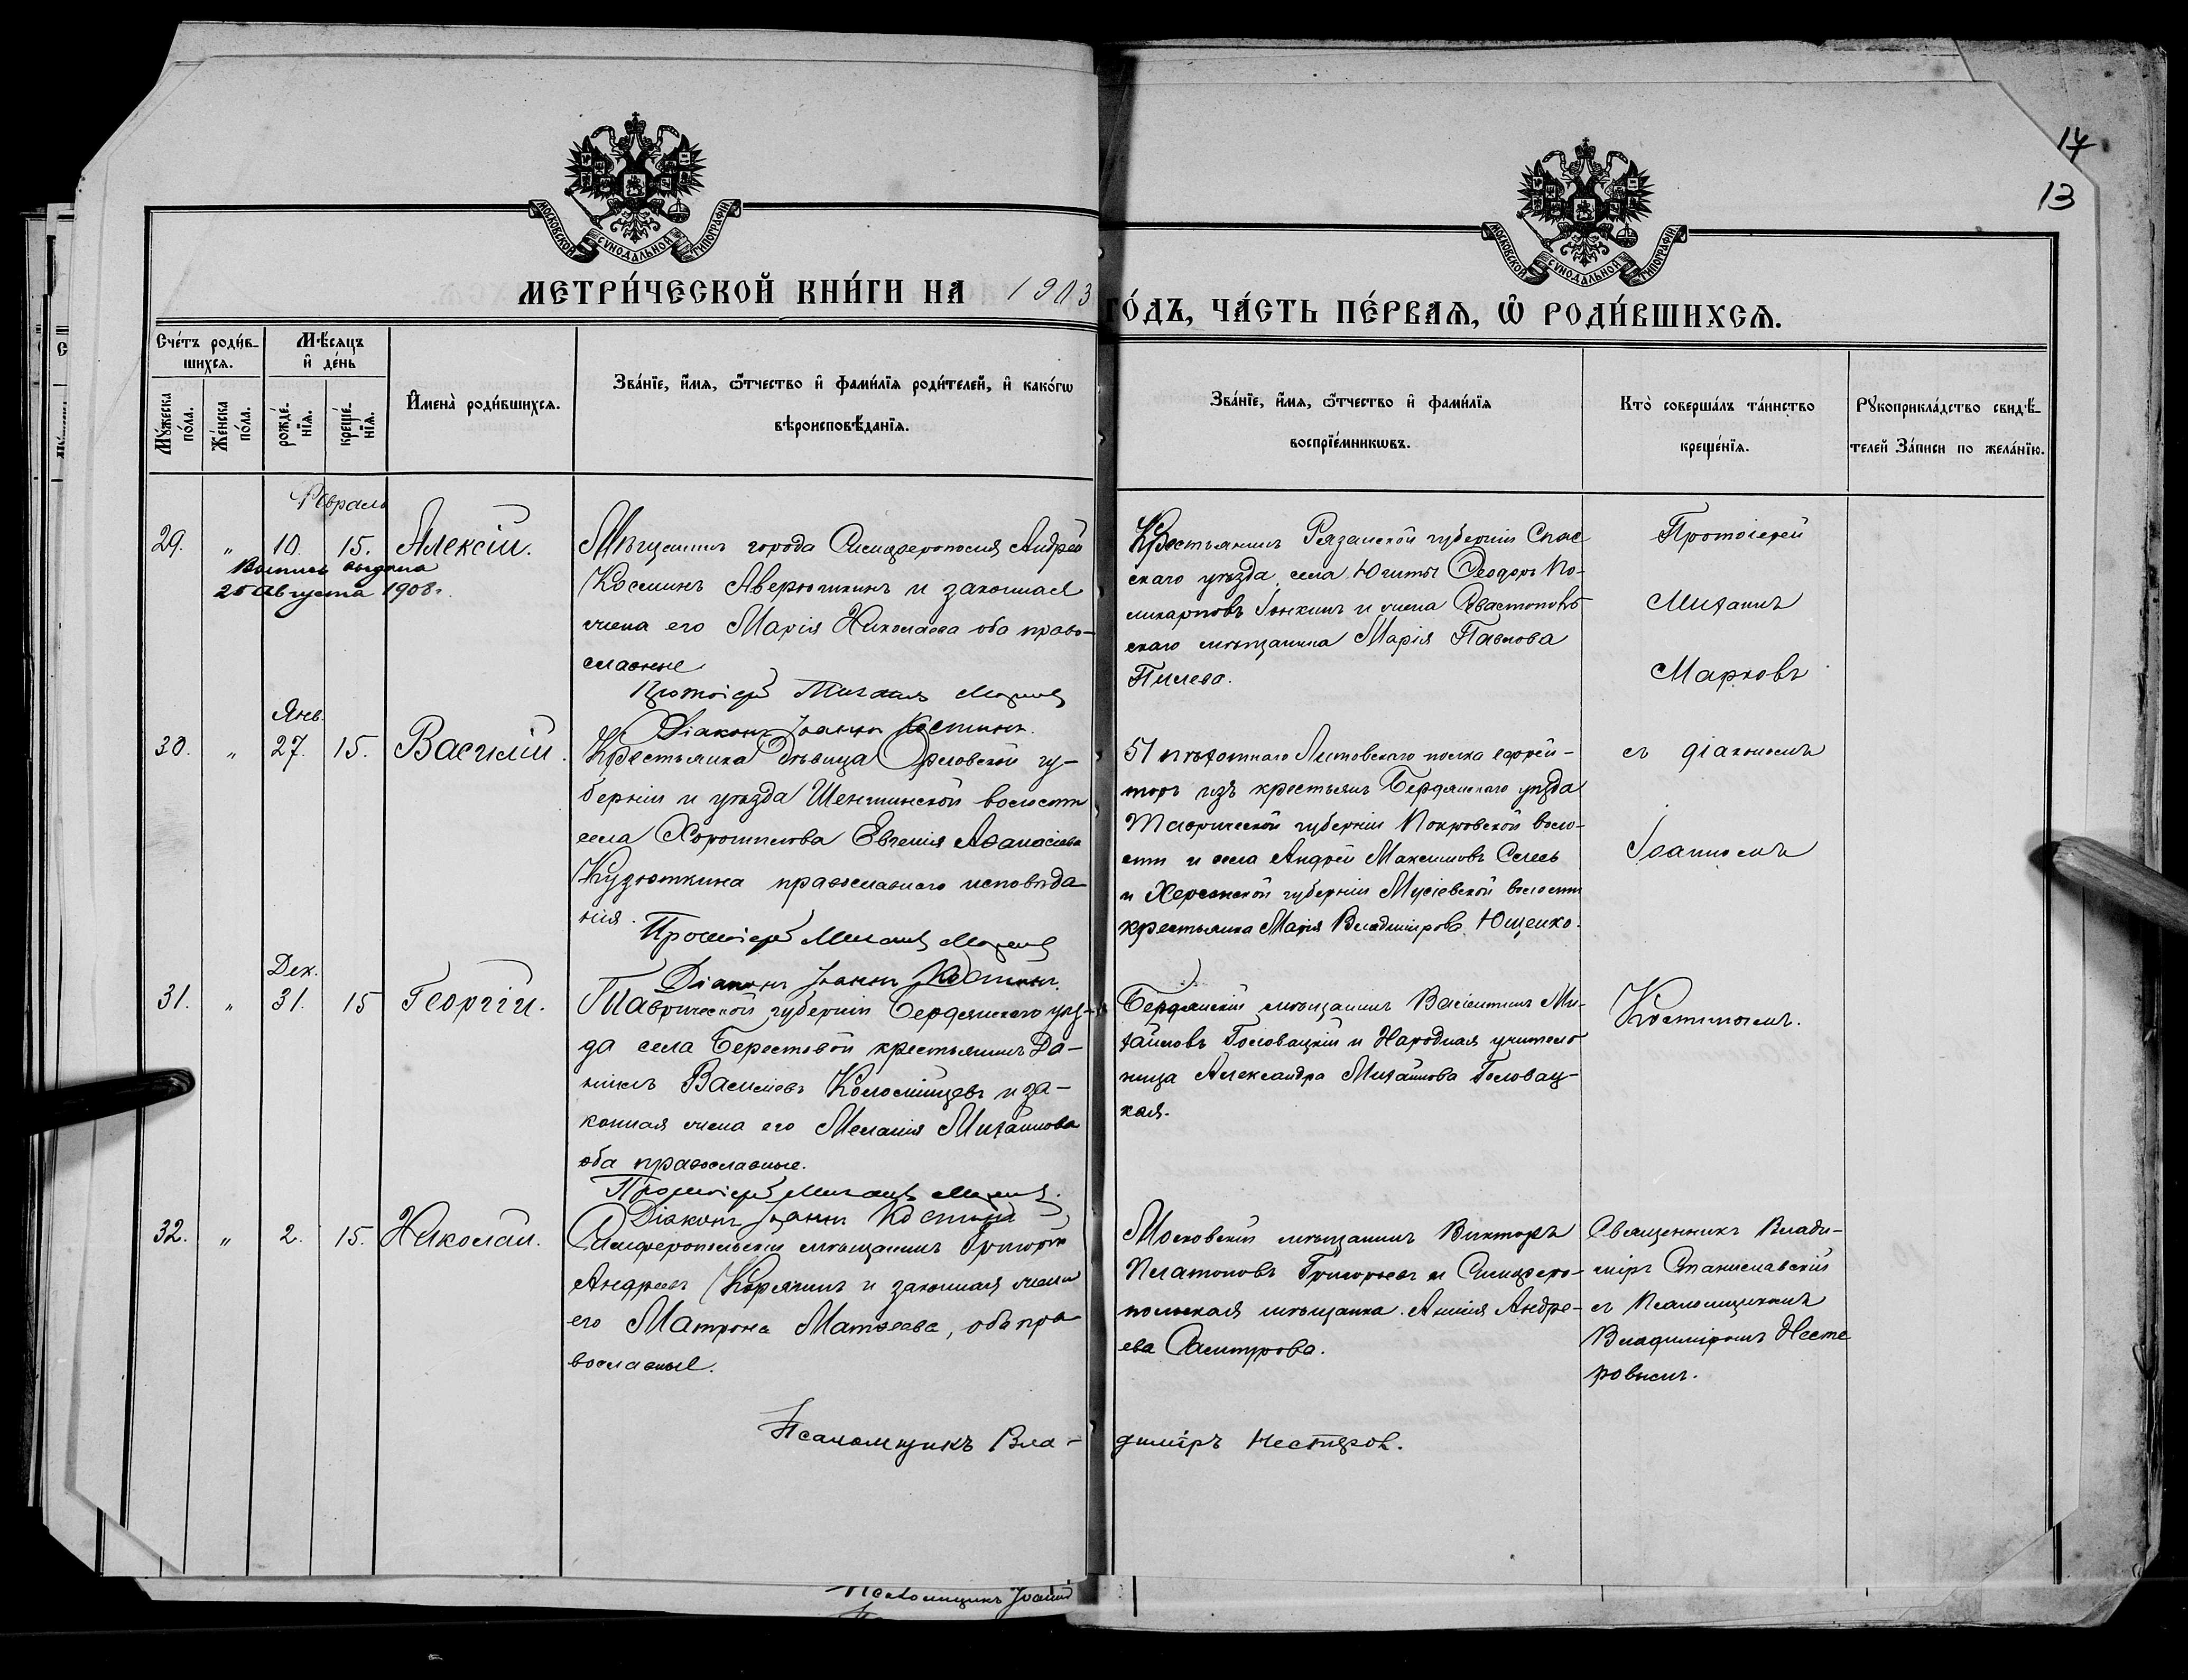 17
13
МОСКОВСКОЙ СѴНОДАЛЬНОЙ ТИПОГРАФІИ
МОСКОВСКОЙ СѴНОДАЛЬНОЙ ТИПОГРАФІИ
МЕТРИ́ЧЕСКОЙ КНИ́ГИ НА 1903
ГО́ДЪ, ЧА́СТЬ ПЕ́РВАѦ, Ѽ РОДИ́ВШИХСѦ.
Сче́тъ роди́в-
шихсѧ.
Мѣ́сяцъ
и҆ де́нь
Мꙋ́жеска
по́ла.
Же́нска
по́ла.
рожде́-
нїѧ.
креще́-
нїѧ.
И҆мена̀ роди́вшихсѧ.
Зва́нїе, и҆́мѧ, ѻ҆́тчество и҆ фами́лїѧ роди́телей, и҆ како́гѡ
вѣроисповѣ́данїѧ.
Зва́нїе, и҆́мѧ, ѻ҆́тчество и҆ фами́лїѧ
воспрїе́мникѡвъ.
Кто̀ соверша́лъ та́инство
креще́нїѧ.
Рꙋкоприкла́дство свидѣ́-
телей За́писи по жела́нїю.
Февраль
29. " 10. 15. Алексій.
Выпись выдана
25 Августа 1908 г.
Мѣщанинъ города Симферополя Андрей
Косминъ Аверюшкинъ и законная
жена его Марія Николаева оба право-
славные
Протоіерей Михаилъ Марковъ
Діаконъ Іоаннъ Костинъ.
Крестьянинъ Рязанской губерніи Спас
скаго уѣзда села Ютиты Ѳеодоръ По-
ликарповъ Іонкинъ и жена Севастополь
скаго мѣщанина Марія Павлова
Пилева.
Протоіерей
Михаилъ
Марковъ
Янв.
30. " 27. 15. Василій.
Крестьянка дѣвица Орловской гу-
берніи и уѣзда Шеншинской волости
села Хорошилова Евгенія Аѳанасіева
Кудюткина православнаго исповѣда-
нія.
Протоіерей Михаилъ Марковъ
Діаконъ Іоаннъ Костинъ.
51 пѣхотнаго Литовскаго полка ефрей-
торъ изъ крестьянъ Бердянскаго уѣзда
Таврической губерніи Покровской воло-
сти и села Андрей Максимовъ Селесь
и Херсонской губерніи Мусіевской волости
крестьянка Марія Владимірова Ющенко.
съ діакономъ
Іоанномъ
Дек.
31. " 31. 15 Георгій.
Таврической губерніи Бердянскаго уѣз-
да села Берестовой крестьянинъ Да-
ніилъ Василіевъ Коломійцевъ и за-
конная жена его Меланія Михайлова
оба православные.
Протоіерей Михаилъ Марковъ.
Діаконъ Іоаннъ Костинъ
Бердянскій мѣщанинъ Валентинъ Ми-
хайловъ Головацкій и Народная учитель
ница Александра Михайлова Головац-
кая.
Костинымъ.
32. " 2. 15. Николай.
Симферопольскій мѣщанинъ Григорій
Андреевъ Корячинъ и законная жена
его Матрона Матѳеева, оба пра-
вославные.
Московскій мѣщанинъ Викторъ
Платоновъ Григорьевъ и Симферо-
польская мѣщанка Анна Андре-
ева Самтурова.
Священникъ Влади-
міръ Станиславскій
съ Псаломщикомъ
Владиміромъ Несте
ровымъ.
Псаломщикъ Вла-
диміръ Нестеров.
Псаломщикъ Іоаннъ